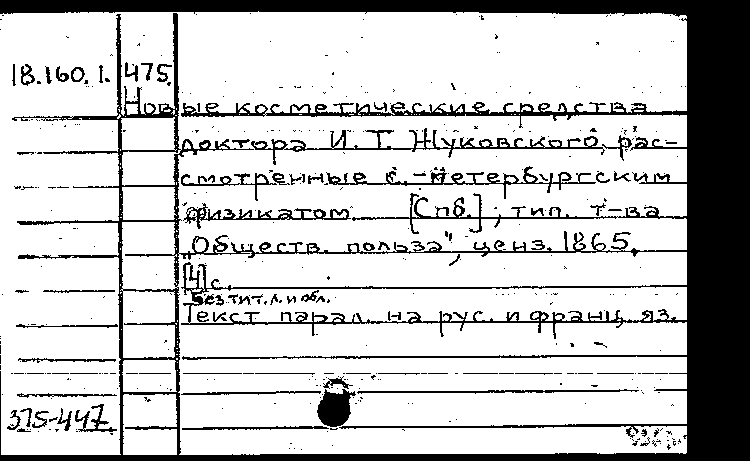 18.160.1. 475.
Новые косметические средства
доктора И. Т. Жуковского, рас-
смотренные С.-Петербургским
физикатом. [Спб.], тип. т-ва
„Обществ. польза", ценз. 1865.
[4] с.
Без тит. л. и обл.
Текст парал. на рус. и франц. яз.
375-447.